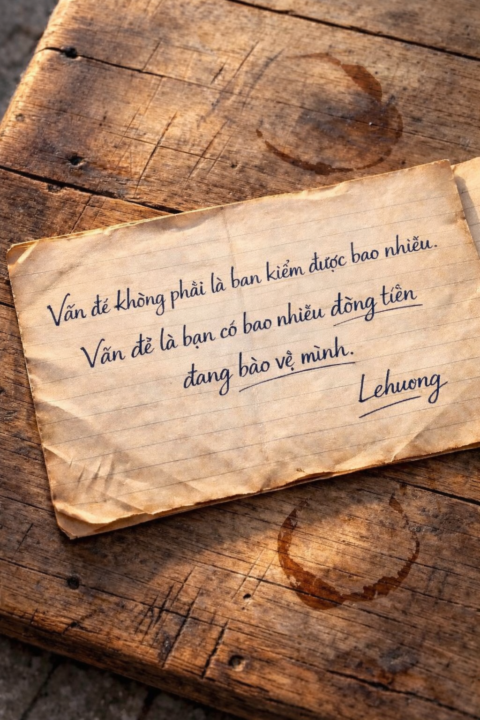 Vấn đé không phải là ban kiểm được bao nhiễu.
Vấn đẻ là bạn có bao nhiễu đòng tiền
đang bào vệ mình.
Lehuong